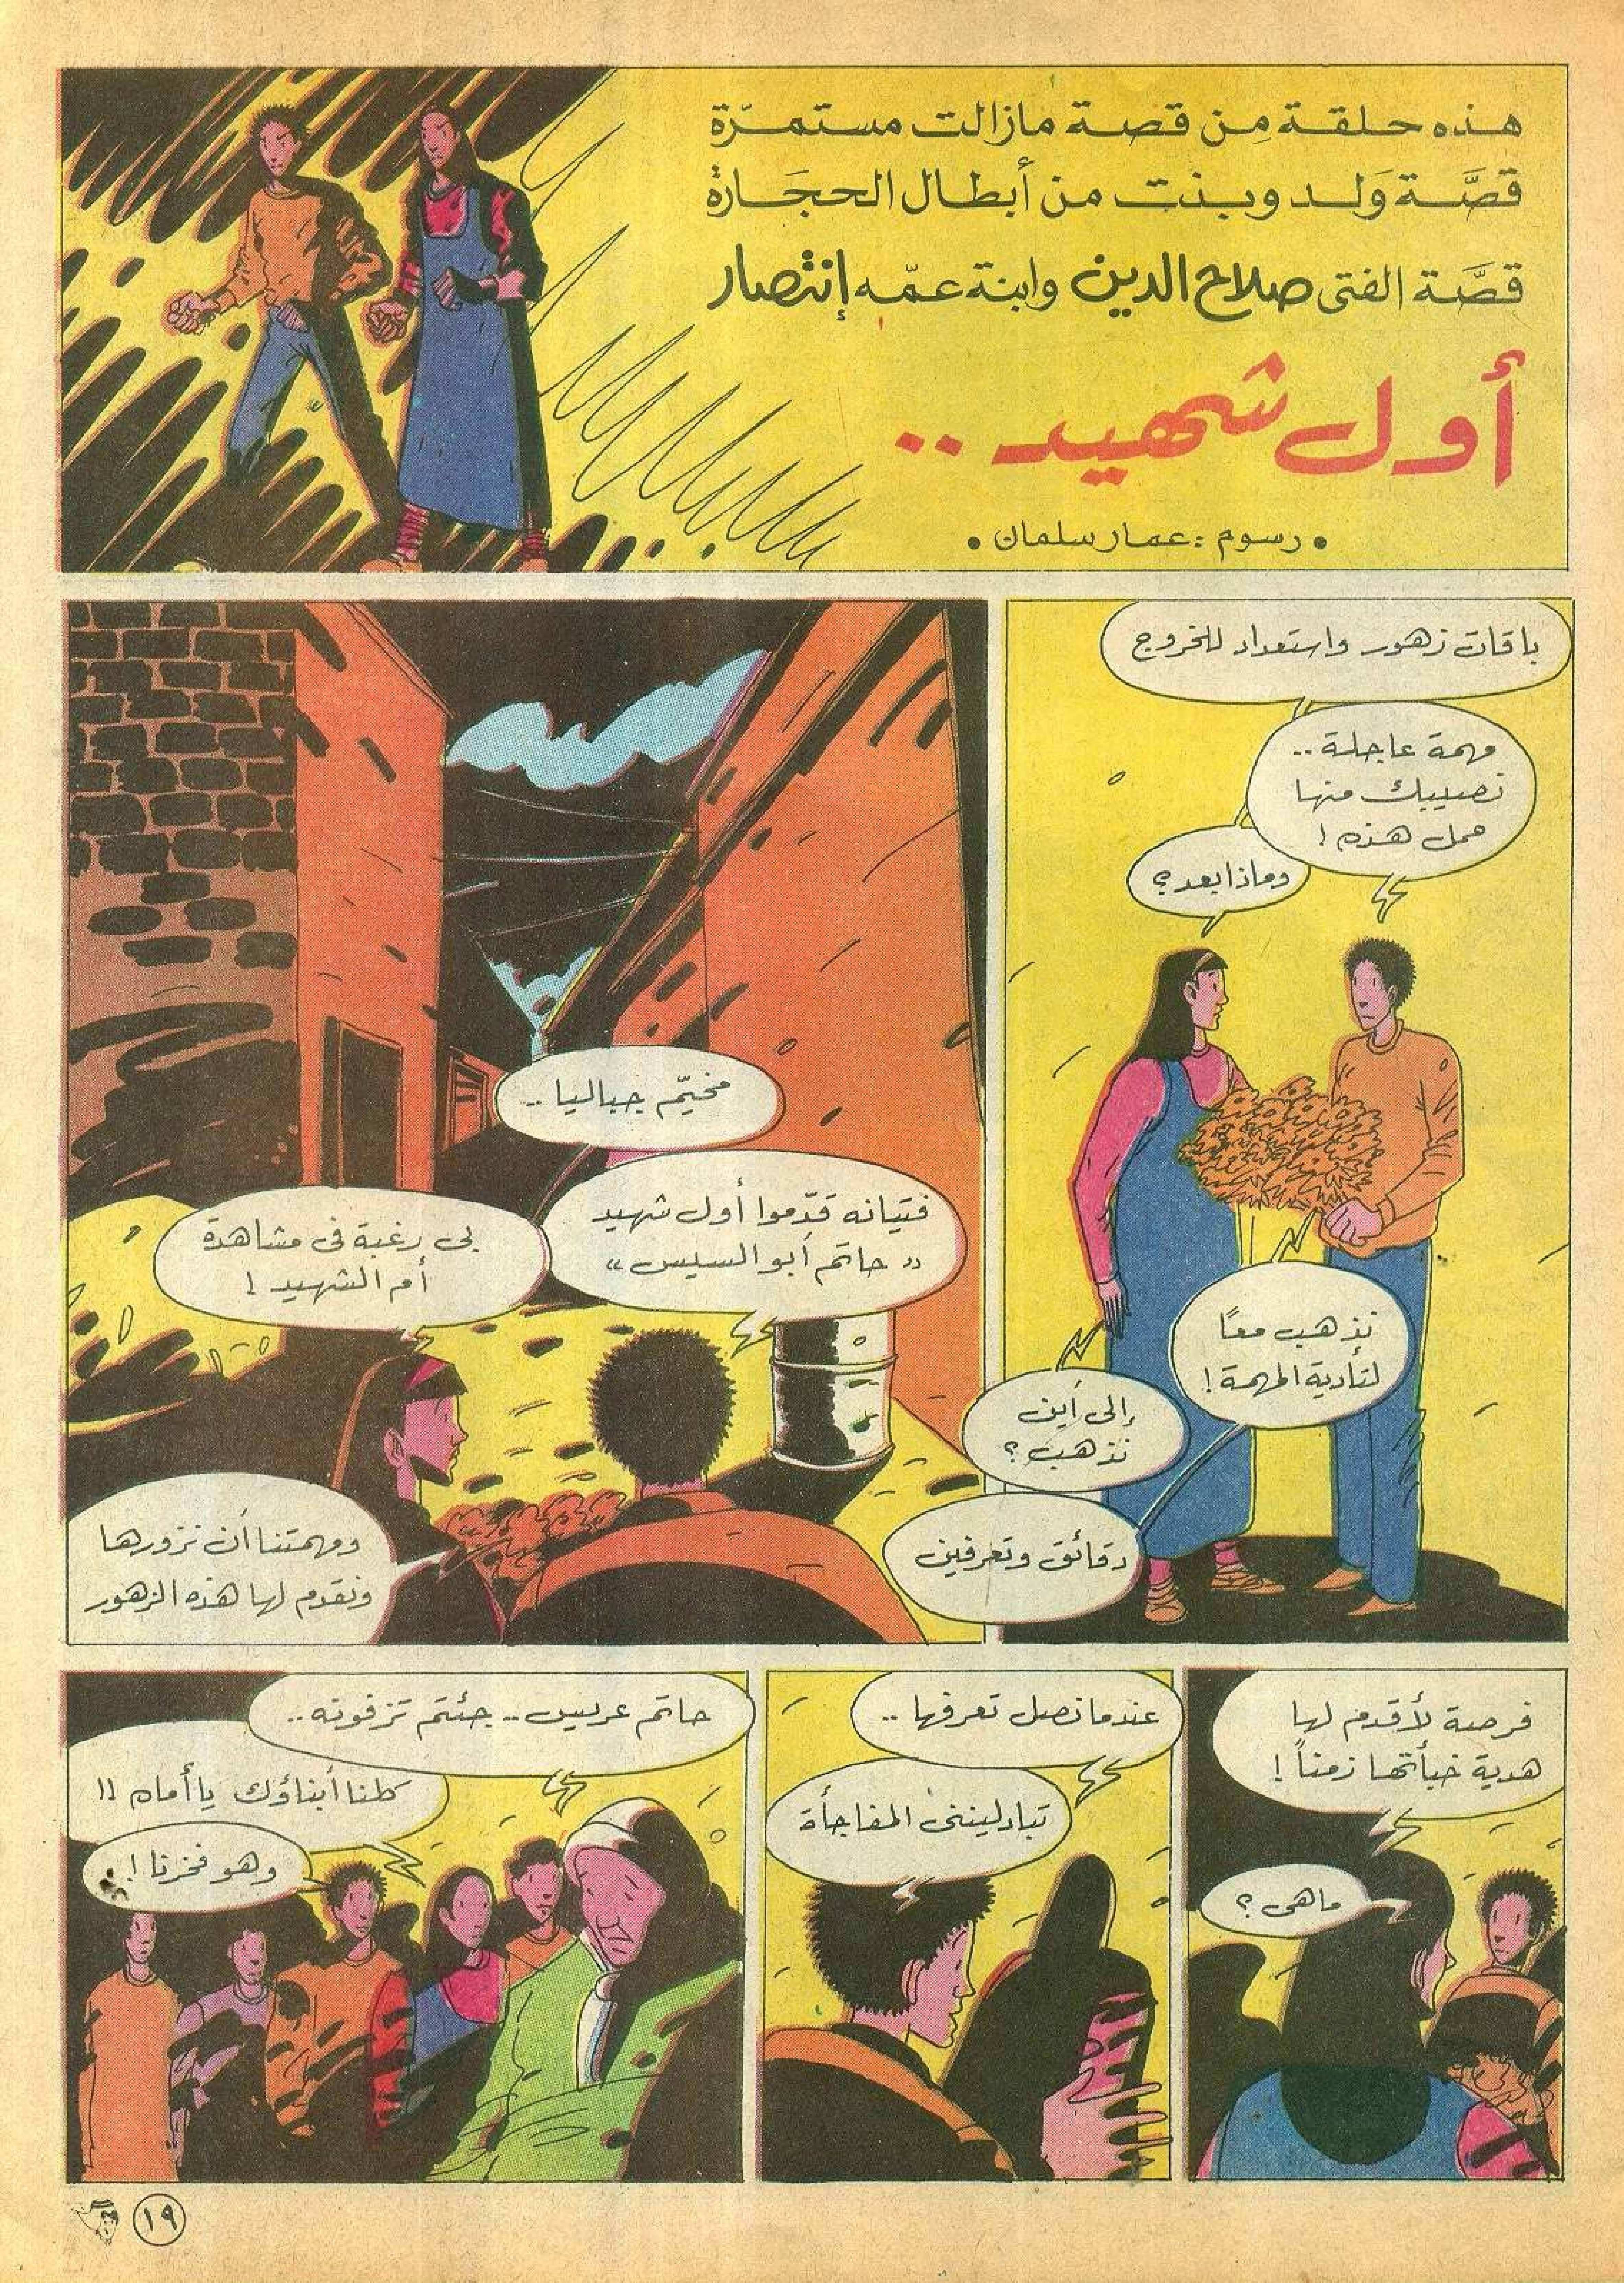 هذه حلقة مِن قصة مازالت مستمرّة
قصَّة وَلد وبنت من أبطال الحجَارة
قصَّة الفتى صلاح الدين وابنة عمّه إنتصار
أول شهيد ..
• رسوم : عمار سلمان •
باقات زهور واستعداد للخروج
مهمة عاجلة ..
نصيبك منها
حمل هذه !
وماذا بعد ؟
نذهب معًا
لتأدية المهمة !
إلى أين
نذهب ؟
دقائق وتعرفين
مخيّم جباليا ..
فتيانه قدّموا أول شهيد
« حاتم أبو السيس »
بي رغبة في مشاهدة
أم الشهيد !
ومهمتنا أن نزورها
ونقدم لها هذه الزهور
فرصة لأقدم لها
هدية خبأتها زمناً !
ماهي ؟
عندما نصل تعرفها ..
تبادلينني المفاجأة
حاتم عريس .. جئتم تزفونه ..
كلنا أبناؤك يا أماه !!
وهو فخرنا !
١٩